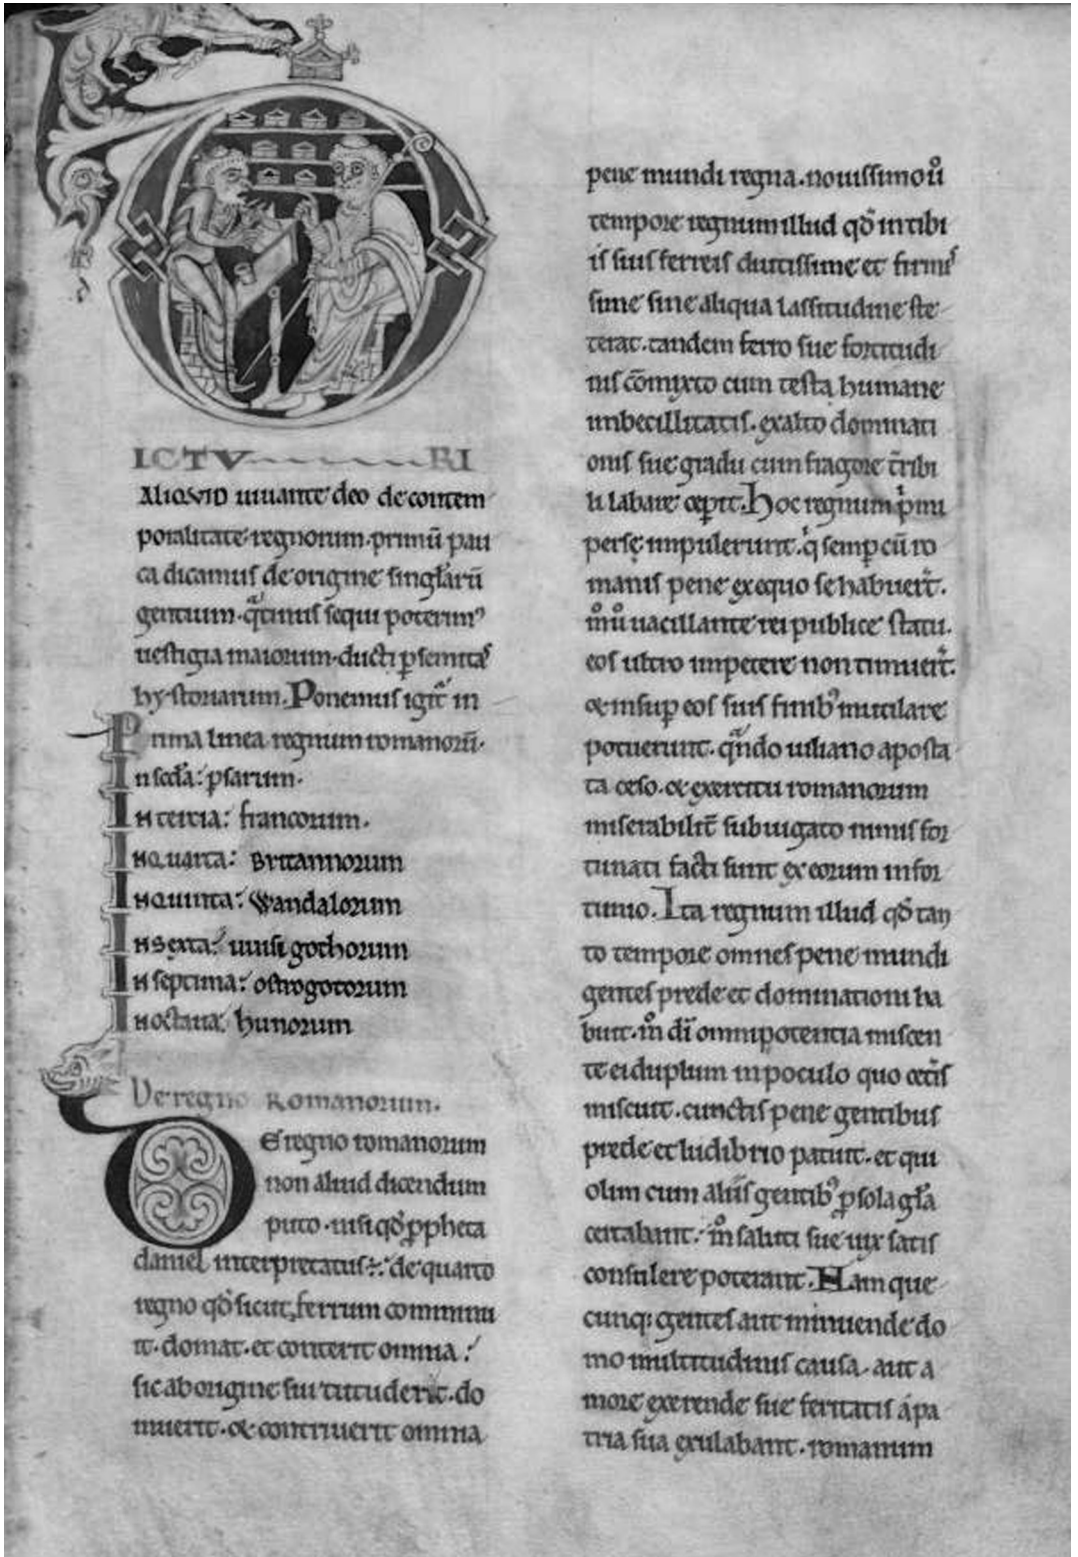 ICTV RI
ALIQVID iuuante deo de contem
poralitate regnorum. primū pau
ca dicamus de origine singlarū
gentium. qͣtinus sequi poterimꝰ
uestigia maiorum. ducti ꝑ semitas
hystoriarum. Ponemus igit̄ in
Prima linea regnum romanorū.
In scda: ꝑsarum.
In tercia: francorum.
In quarta: Britannorum
In quinta: Wandalorum
In sexta: uuisi gothorum
In septima: ostrogotorum
In octaua: hunorum
De regno Romanorum.
De regno romanorum
non aliud dicendum
puto. nisi qđ ꝓpheta
daniel interpretatus: de quarto
regno qđ sicut ferrum comminu
it. domat. et conterit omnia:
sic ab origine sui tutuderit. do
muerit. & contriuerit omnia
pene mundi regna. nouissimo uͦ
tempore regnum illud qđ in tibi
is suis ferreis diutissime et firmis
sime sine aliqua lassitudine ste
terat. tandem ferro sue fortitudi
nis cōmixto cum testa humane
imbecillitatis. ex alto dominati
onis sue gradu cum fragore t̄ribi
li labare cepit. Hoc regnum pͥmi
persę impulerunt. qͥ semp cū ro
manis pene ex equo se habuer̄t.
mͦ uͦ uacillante rei publice statu.
eos ultro impetere non timuer̄t.
& insuꝑ eos suis finibꝰ mutilare
potuerunt. qͣndo iuliano aposta
ta ceso. & exercitu romanorum
miserabilit̄ subiugato nimis for
tunati facti sunt ex eorum infor
tunio. Ita regnum illud qđ tan
to tempore omnes pene mundi
gentes prede et dominationi ha
buit. mͦ di omnipotentia miscen
te ei duplum in poculo quo cet̄is
miscuit. cunctis pene gentibus
prede et ludibrio patuit. et qui
olim cum aliis gentibꝰ ꝓ sola gl̄a
certabant: mͦ saluti sue uix satis
consulere poterant. Nam que
cunq; gentes aut minuende do
mo multitudinis causa. aut a
more exerende sue feritatis a pa
tria sua exulabant. romanum